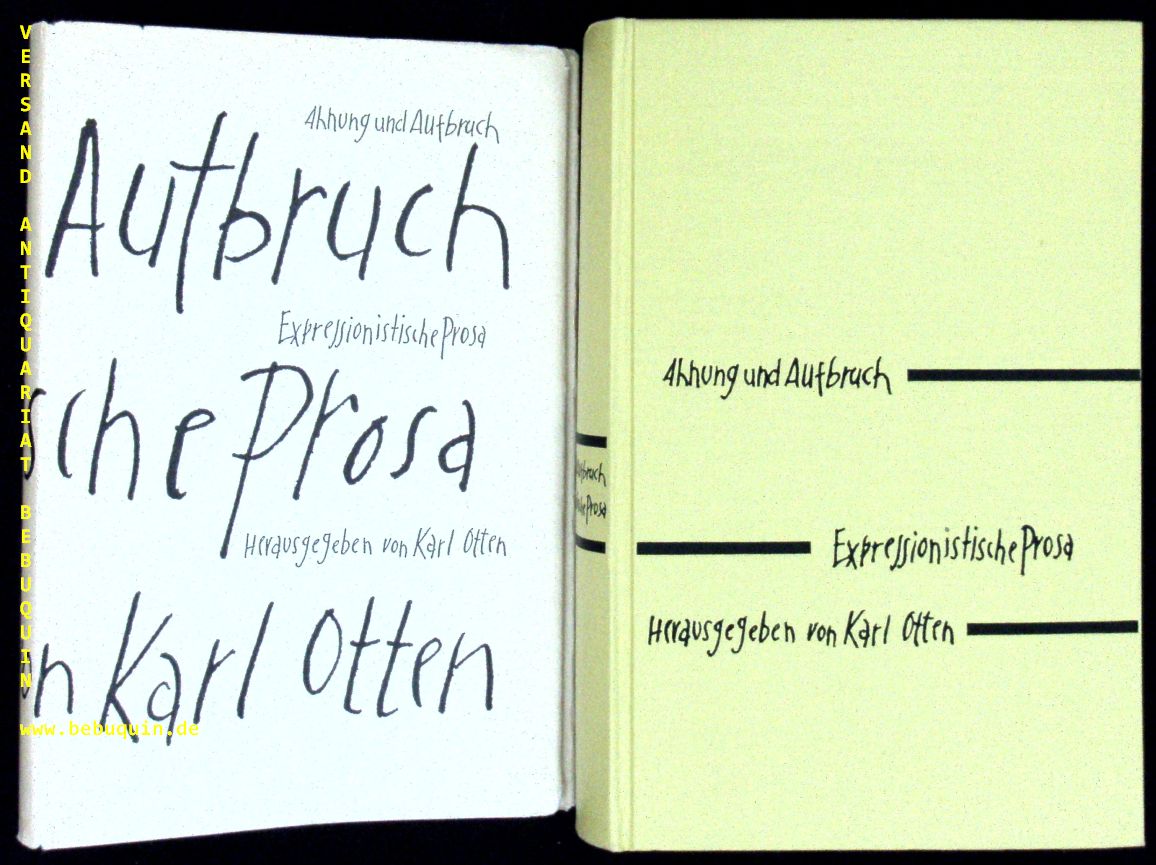 VERSAND ANTIQUARIAT BEBUQUIN
Ahnung und Aufbruch
Aufbruch
Expressionistische Prosa
sche Prosa
Herausgegeben von Karl Otten
n Karl Otten
www.bebuquin.de
Aufbruch
Prosa
Ahnung und Aufbruch
Expressionistische Prosa
Herausgegeben von Karl Otten